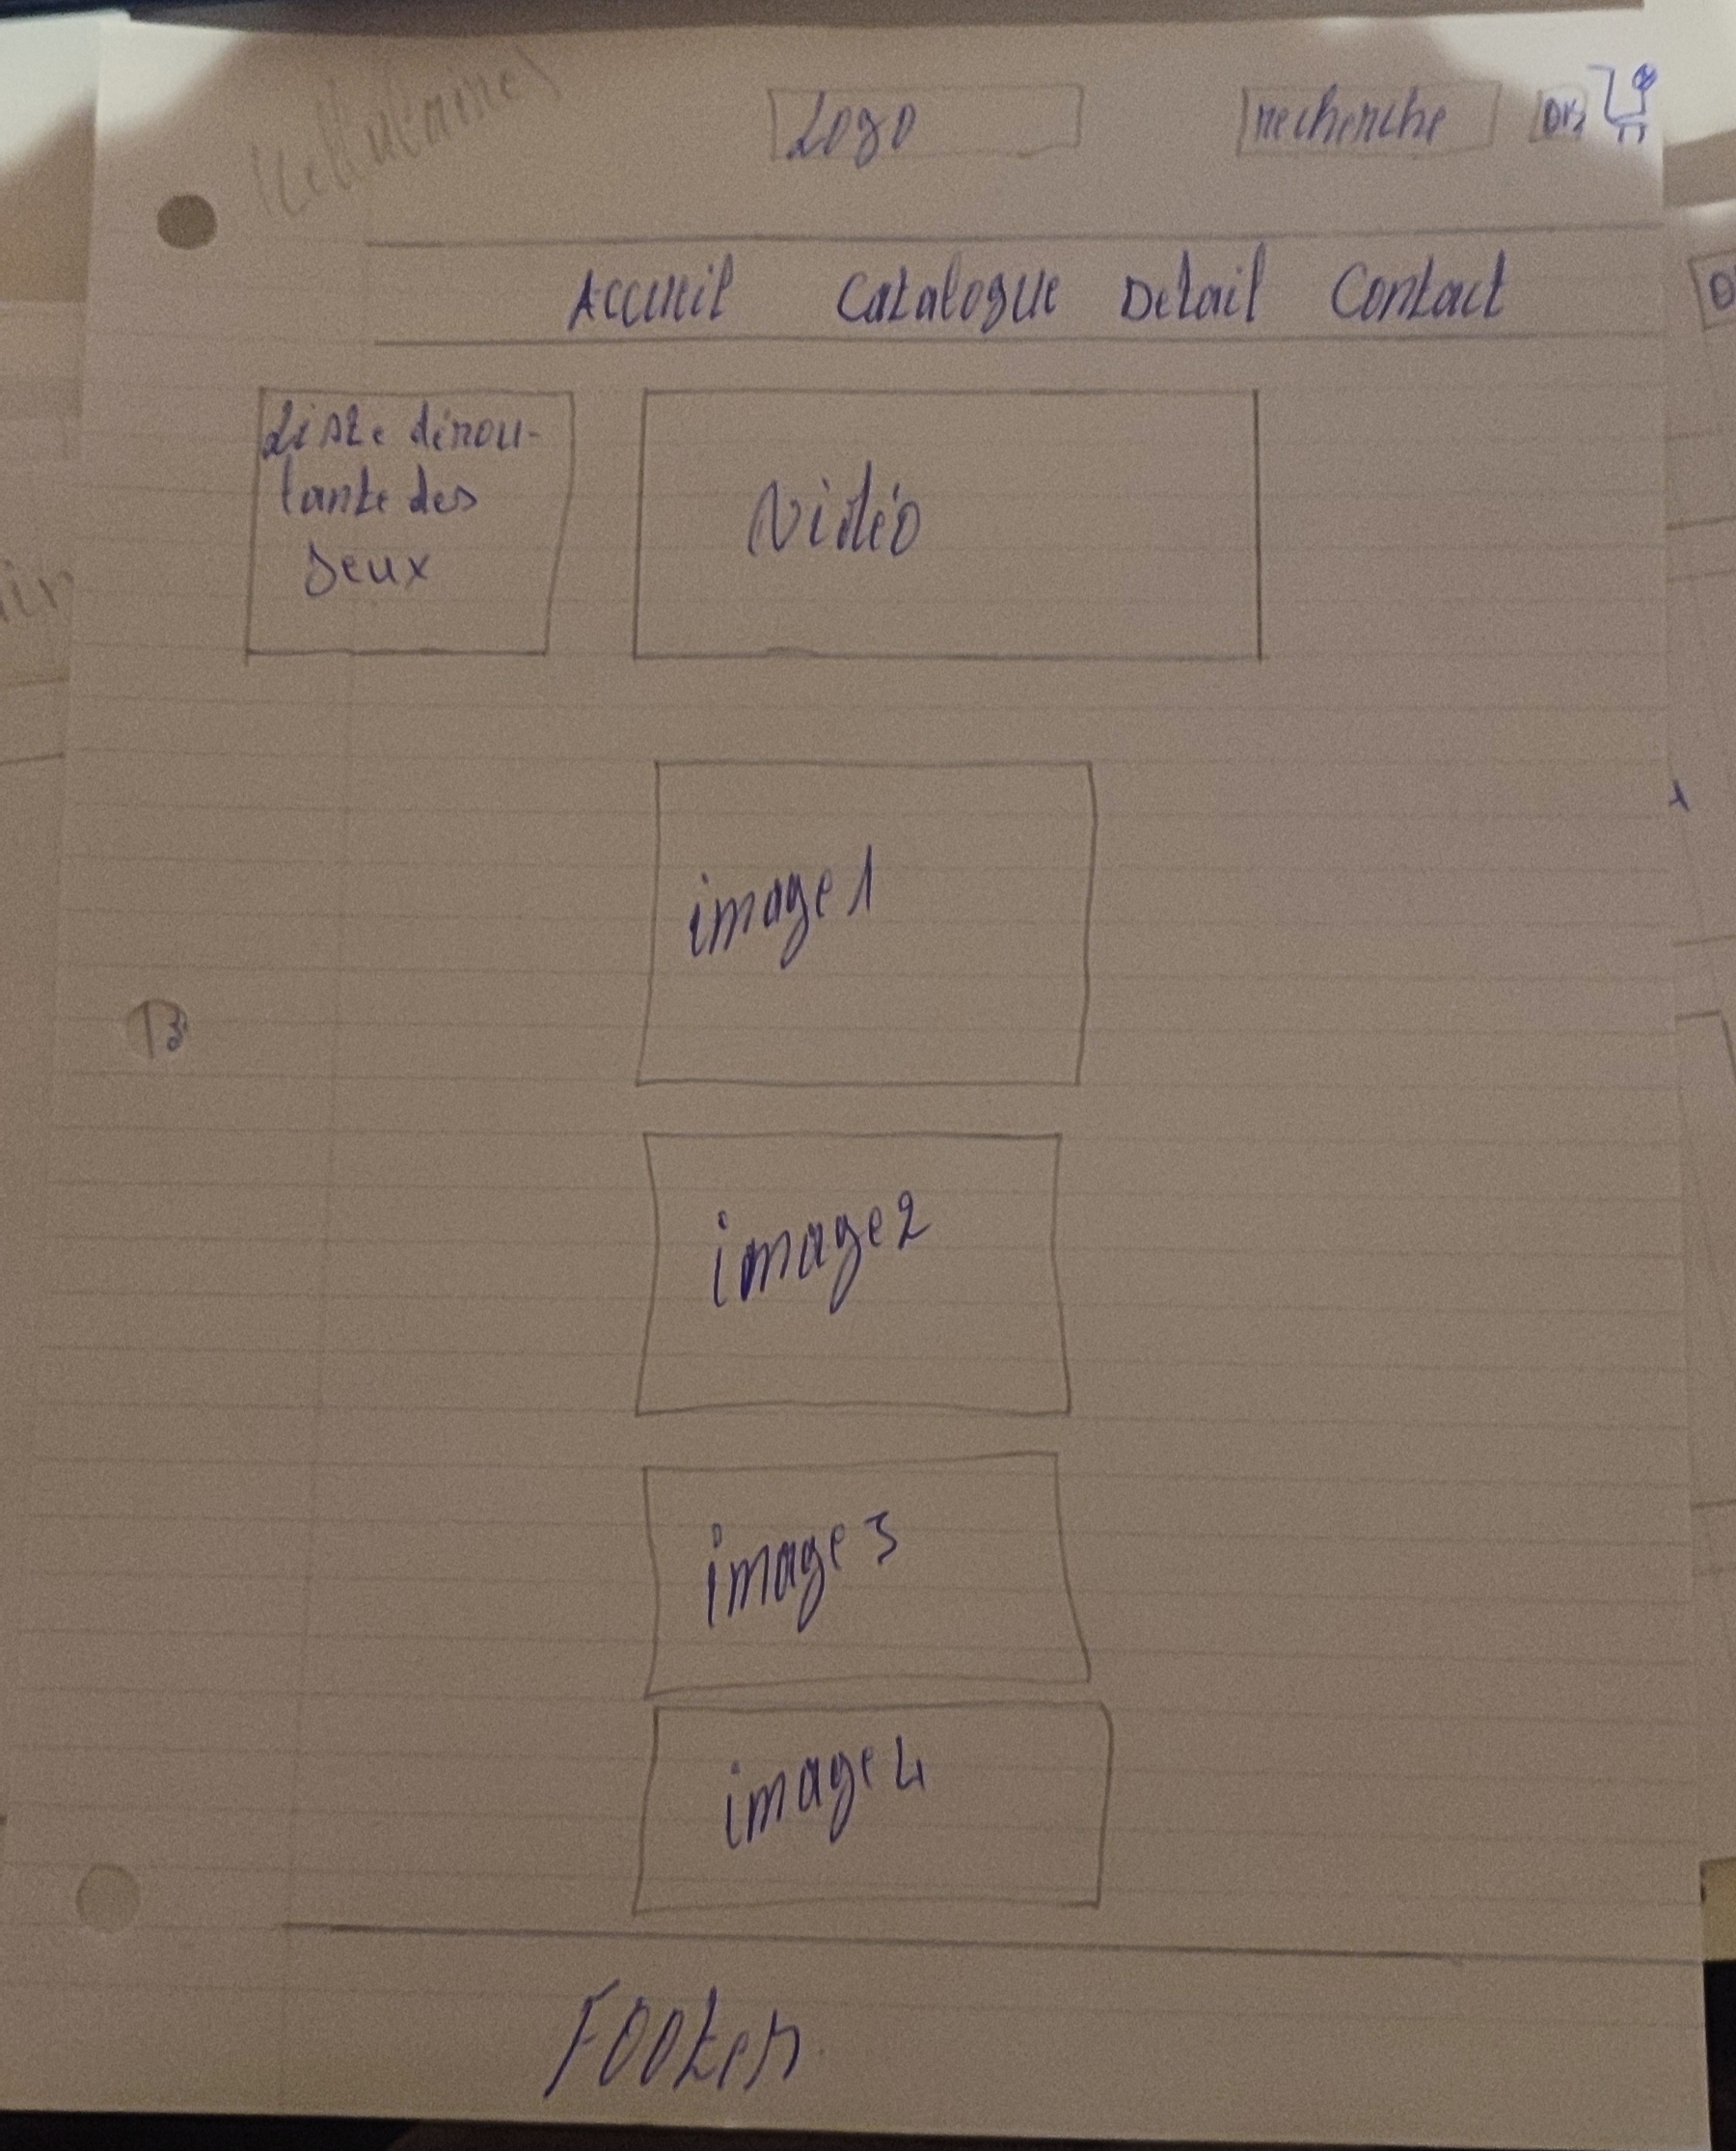 Logo
recherche
OK
Accueil Catalogue Detail Contact
Liste dérou-
lante des
Jeux
Vidéo
image 1
image 2
image 3
image 4
Footer